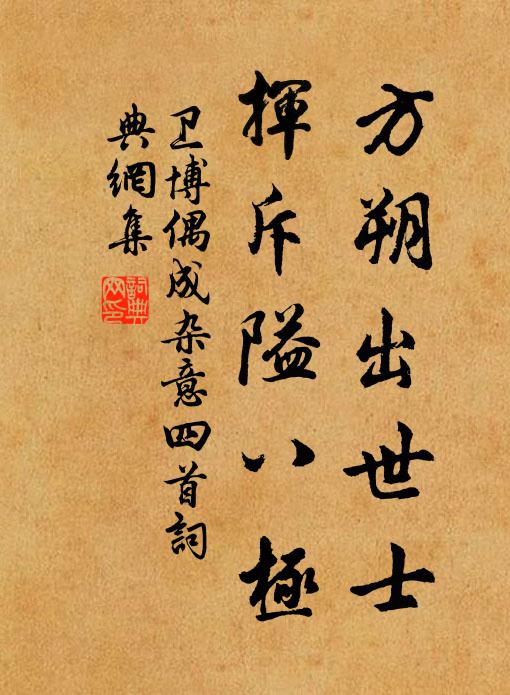 方朔出世士
揮斥隘八極
卫博偶成杂意四首詞
典網集
詞典網印